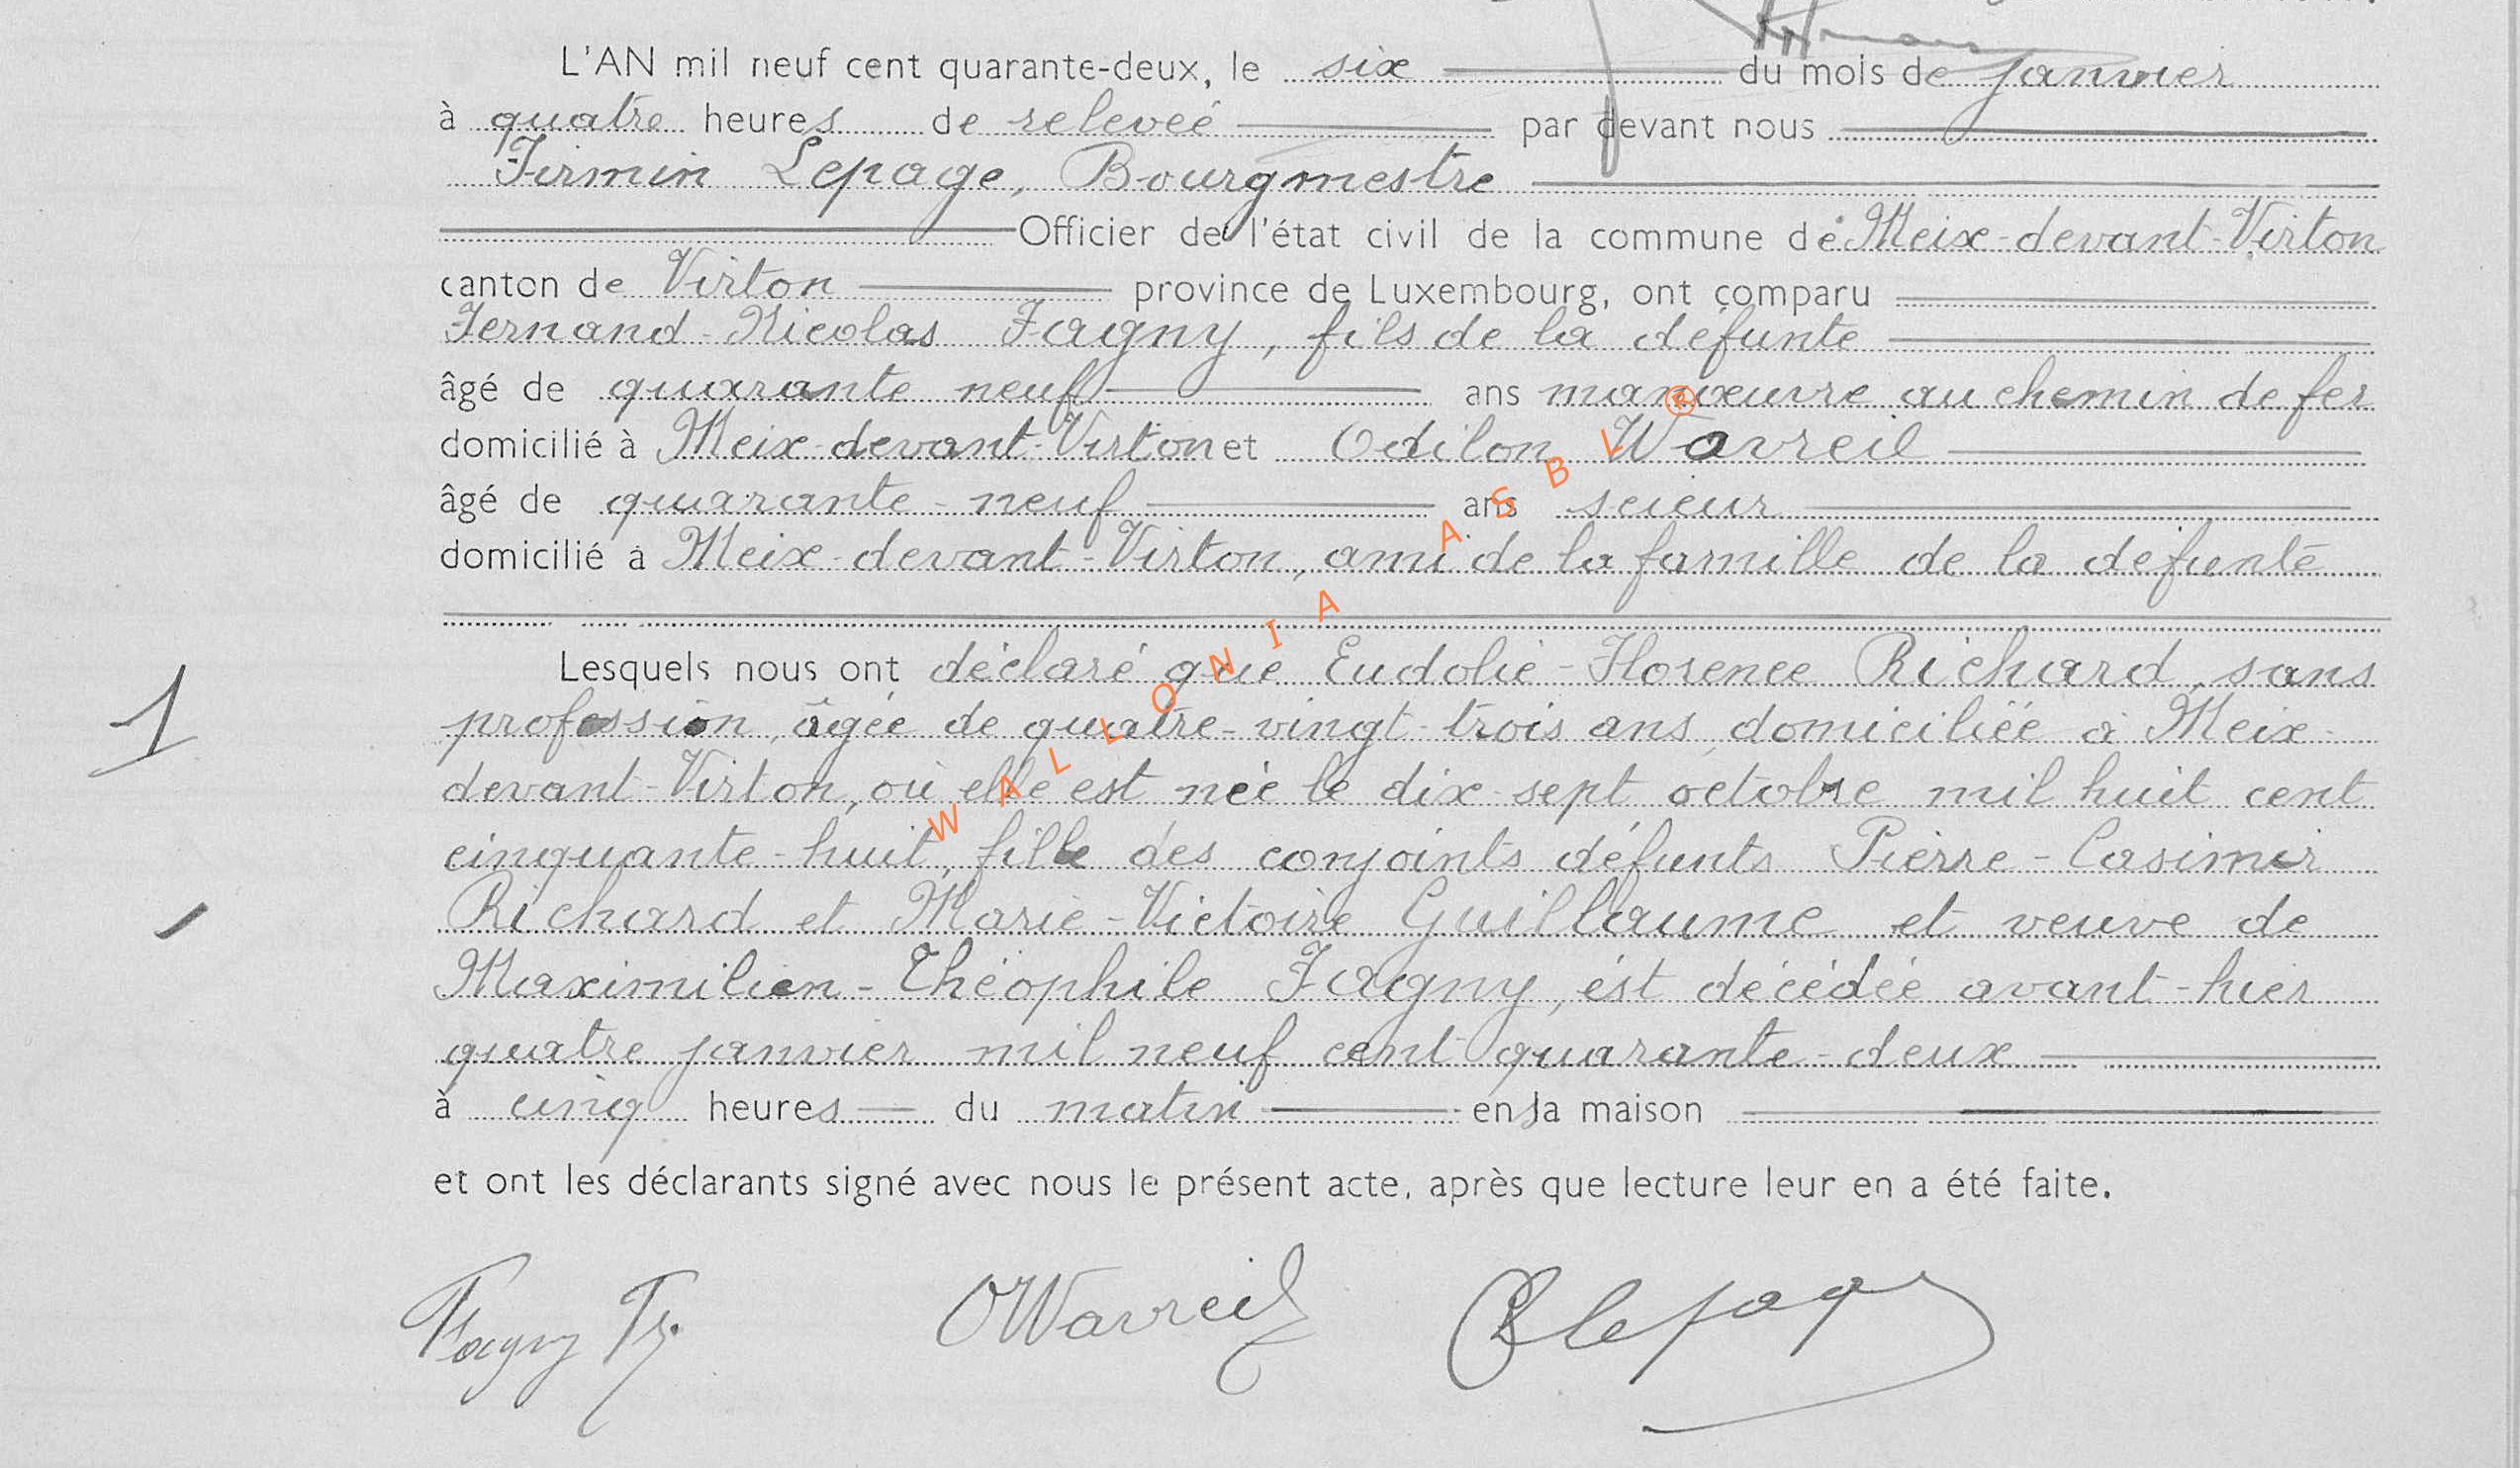 L'AN mil neuf cent quarante-deux, le six du mois de janvier
à quatre heures de relevée par devant nous
Firmin Lepage, Bourgmestre
Officier de l'état civil de la commune de Meix-devant-Virton
canton de Virton province de Luxembourg, ont comparu
Fernand-Nicolas Fagny, fils de la défunte
âgé de quarante neuf ans manœuvre au chemin de fer
domicilié à Meix-devant-Virton et Odilon Wavreil
âgé de quarante-neuf ans scieur
domicilié à Meix-devant-Virton, ami de la famille de la défunte
1
Lesquels nous ont déclaré que Eudolie-Florence Richard, sans
profession, âgée de quatre-vingt-trois ans, domiciliée à Meix-
devant-Virton, où elle est née le dix-sept octobre mil huit cent
cinquante-huit, fille des conjoints défunts Pierre-Casimir
Richard et Marie-Victoire Guillaume et veuve de
Maximilien-Théophile Fagny, est décédée avant-hier
quatre janvier mil neuf cent quarante-deux
à cinq heures du matin en sa maison
et ont les déclarants signé avec nous le présent acte, après que lecture leur en a été faite.
Fagny OWavreil Lepage
WALLONIA ASBL ®